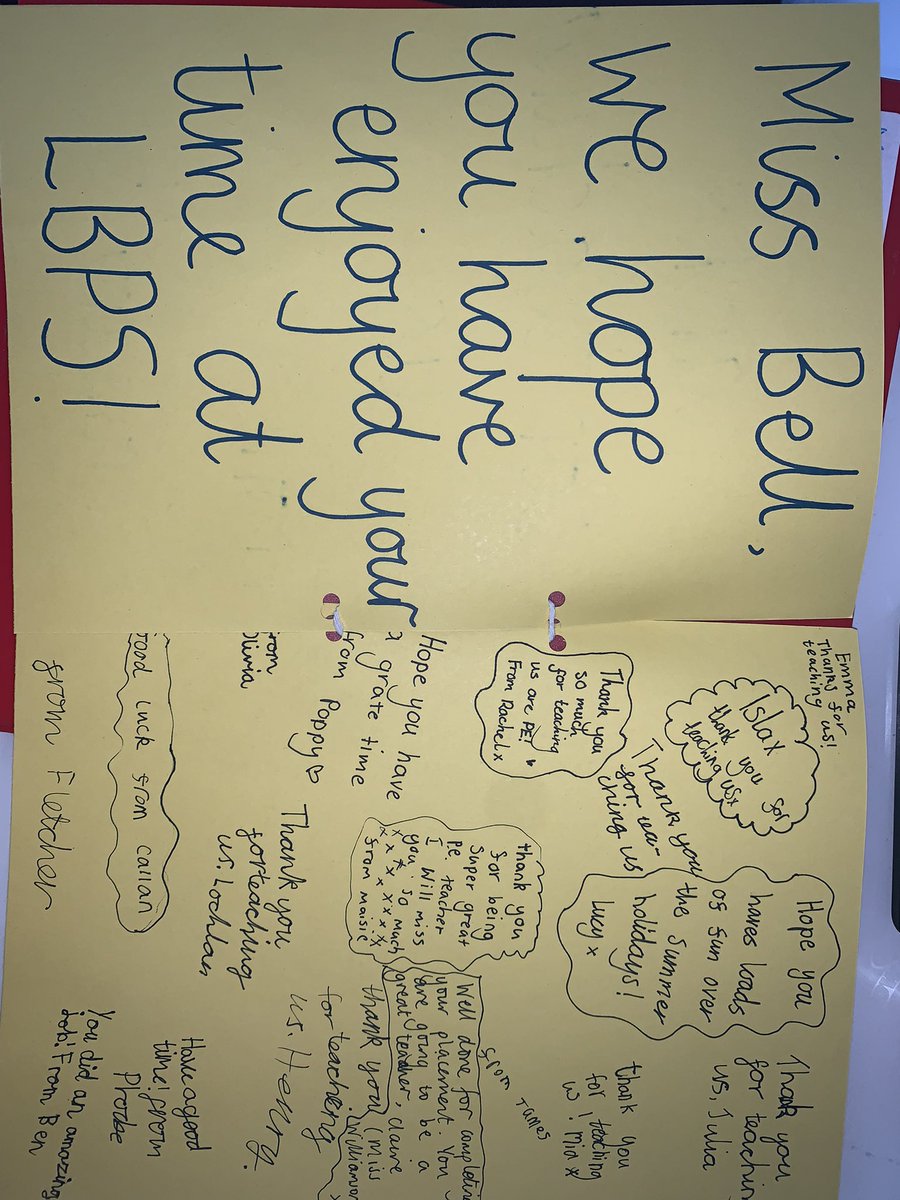 Miss Bell,
We hope
you have
enjoyed your
time at
LBPS!
Emma
Thanks for
teaching us!
Isla x
thank you for
teaching us x
Thank you
for tea-
ching us
Hope you
haves loads
of fun over
the summer
holidays!
Lucy x
Thank you
for teachin
us, Julia
Thank you
so much
for teaching
us are PE!
From Rachel x
thank you
for being
super great
P.E. teacher
I will miss
you so much
x x x x x x x x
from maisie
thank you
for teaching
us! min x
from James
Well done for completin
your placement. You
are going to be a
great teacher, Claire
thank you (miss
Williamson
Hope you have
a grate time
from Poppy ♡
for teaching
us. Henry.
Thank you
for teaching
us. Lochlan
Have a good
time. from
Phoebe
rom
Olivia
good luck from callan
from Fletcher
You did an amazing
Job! From Ben